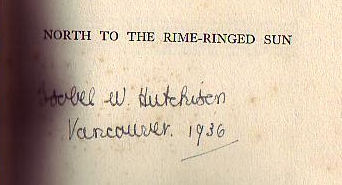 NORTH TO THE RIME-RINGED SUN
Isobel W. Hutchison
Vancouver. 1936